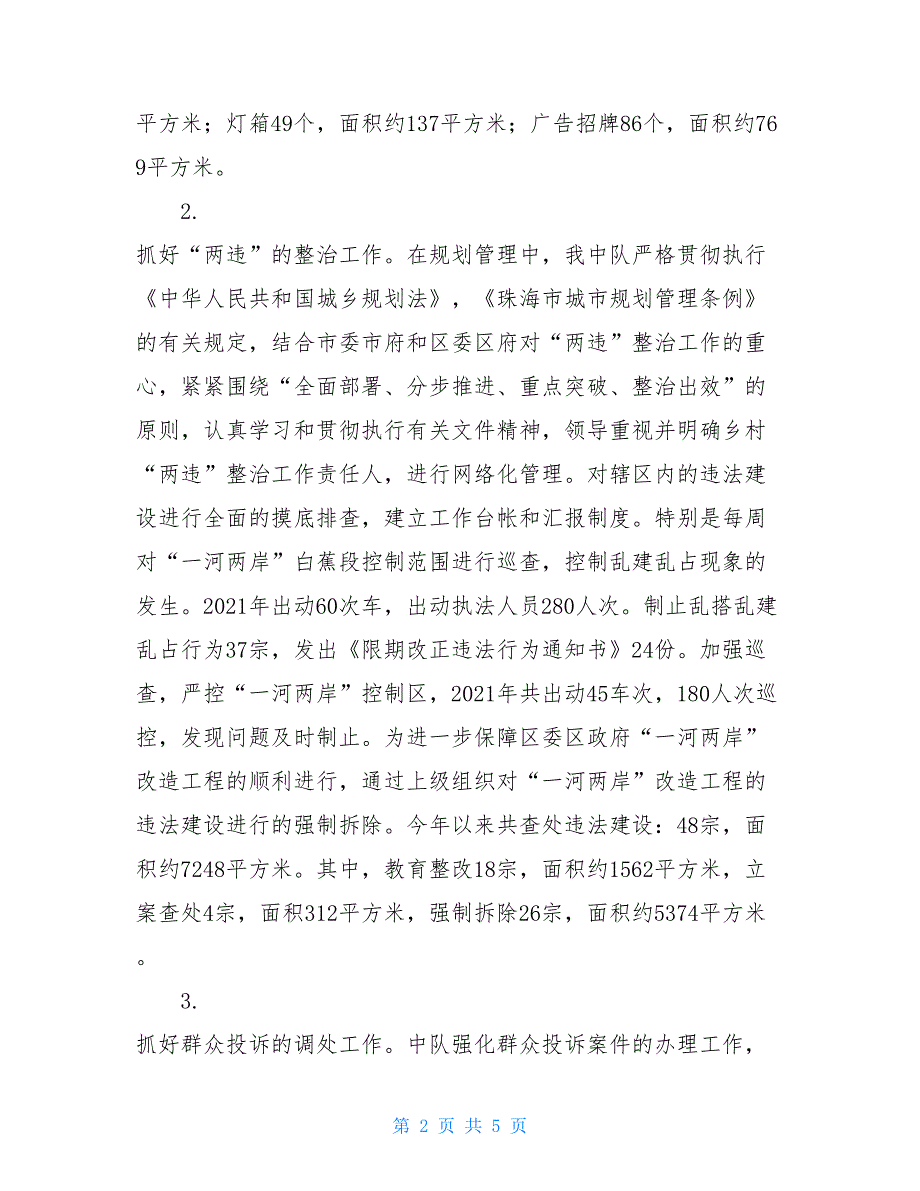 平方米；灯箱49个，面积约137平方米；广告招牌86个，面积约76
9平方米。
2.
抓好“两违”的整治工作。在规划管理中，我中队严格贯彻执行
《中华人民共和国城乡规划法》，《珠海市城市规划管理条例》
的有关规定，结合市委市府和区委区府对“两违”整治工作的重
心，紧紧围绕“全面部署、分步推进、重点突破、整治出效”的
原则，认真学习和贯彻执行有关文件精神，领导重视并明确乡村
“两违”整治工作责任人，进行网络化管理。对辖区内的违法建
设进行全面的摸底排查，建立工作台帐和汇报制度。特别是每周
对“一河两岸”白蕉段控制范围进行巡查，控制乱建乱占现象的
发生。2021年出动60次车，出动执法人员280人次。制止乱搭乱建
乱占行为37宗，发出《限期改正违法行为通知书》24份。加强巡
查，严控“一河两岸”控制区，2021年共出动45车次，180人次巡
控，发现问题及时制止。为进一步保障区委区政府“一河两岸”
改造工程的顺利进行，通过上级组织对“一河两岸”改造工程的
违法建设进行的强制拆除。今年以来共查处违法建设：48宗，面
积约7248平方米。其中，教育整改18宗，面积约1562平方米，立
案查处4宗，面积312平方米，强制拆除26宗，面积约5374平方米
。
3.
抓好群众投诉的调处工作。中队强化群众投诉案件的办理工作，
第 2 页 共 5 页